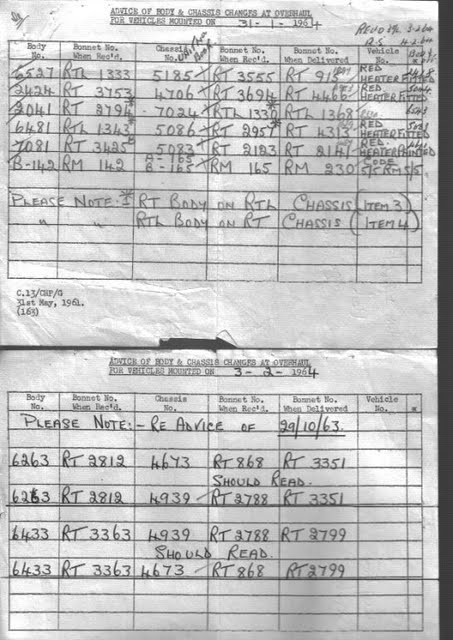 ADVICE OF BODY & CHASSIS CHANGES AT OVERHAUL
FOR VEHICLES MOUNTED ON 31-1-1964
Body No. Bonnet No. When Rec'd. Chassis No. Bonnet No. When Rec'd. Bonnet No. When Delivered Vehicle No.
6527 RTL 1333 5185 RT 3555 RT 915 RED HEATER FITTED
2424 RT 3753 4706 RT 3694 RT 4466 RED HEATER FITTED
2041 RT 2794* 7024 RTL 1330* RTL 1368
6481 RTL 1343* 5086 RT 2957* RT 4313 RED HEATER FITTED
7081 RT 3425 5083 RT 2123 RT 2141 RED.
B-142 RM 142 A-165 B-165 RM 165 RM 230 CODE 5/5 RM 5/5
PLEASE NOTE:* RT BODY ON RTL CHASSIS (ITEM 3)
" " RTL BODY ON RT CHASSIS (ITEM 4)
C.13/CHF/G
31st May, 1961.
(163)
ADVICE OF BODY & CHASSIS CHANGES AT OVERHAUL
FOR VEHICLES MOUNTED ON 3-2-1964
Body No. Bonnet No. When Rec'd. Chassis No. Bonnet No. When Rec'd. Bonnet No. When Delivered Vehicle No. *
PLEASE NOTE:- RE ADVICE OF 29/10/63.
6263 RT 2812 4673 RT 868 RT 3351
SHOULD READ.
6263 RT 2812 4939 RT 2788 RT 3351
6433 RT 3363 4939 RT 2788 RT 2799
SHOULD READ.
6433 RT 3363 4673 RT 868 RT 2799